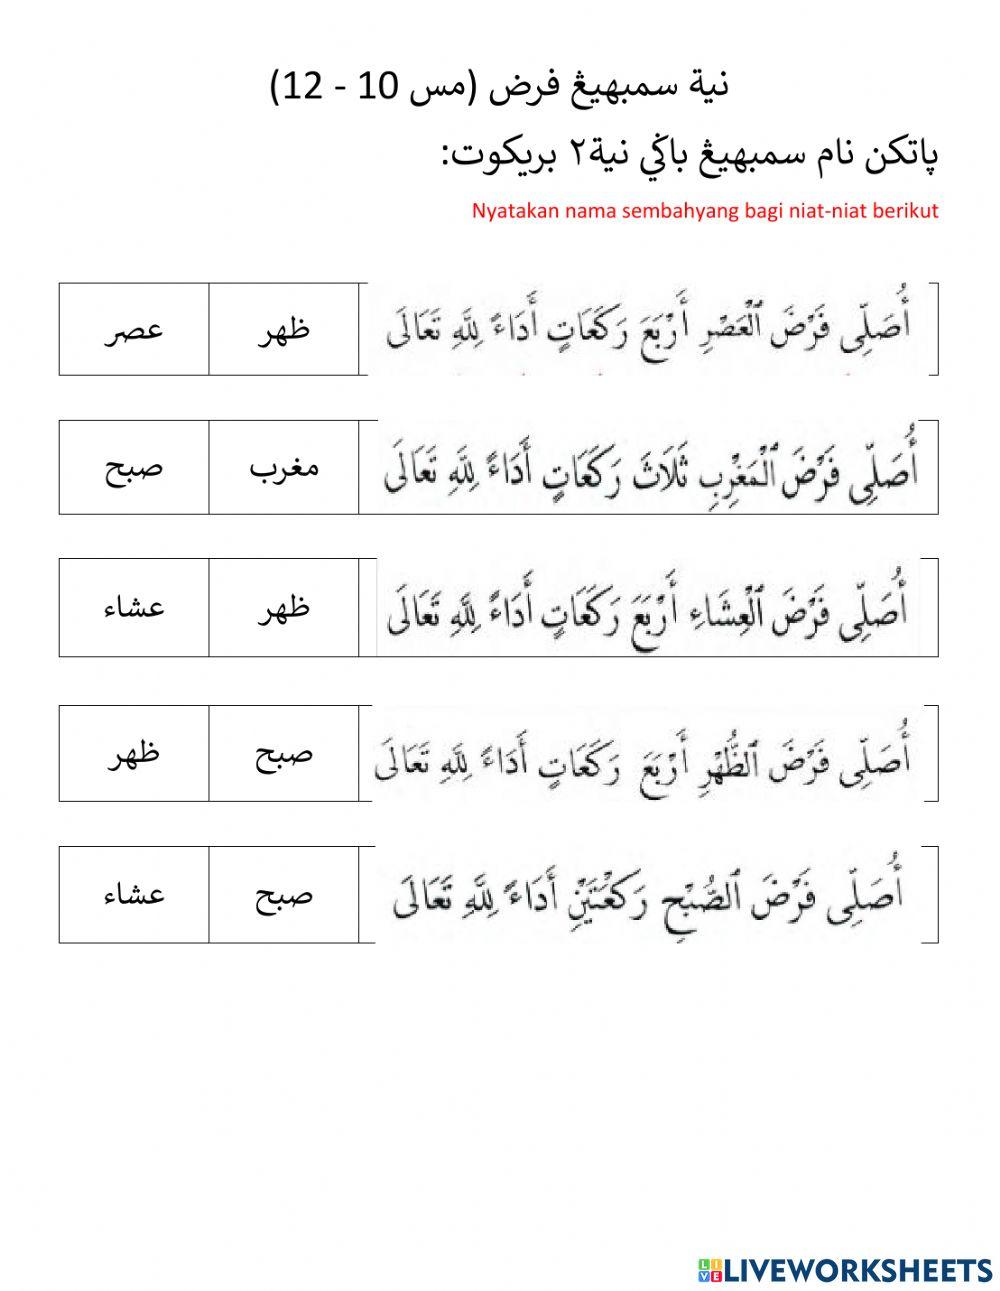 نية سمبهيڠ فرض (مس 10 - 12)
ڽاتكن نام سمبهيڠ باݢي نية٢ بريكوت:
Nyatakan nama sembahyang bagi niat-niat berikut
أُصَلِّى فَرْضَ ٱلْعَصْرِ أَرْبَعَ رَكَعَاتٍ أَدَاءً لِلَّهِ تَعَالَى ظهر عصر
أُصَلِّى فَرْضَ ٱلْمَغْرِبِ ثَلَاثَ رَكَعَاتٍ أَدَاءً لِلَّهِ تَعَالَى مغرب صبح
أُصَلِّى فَرْضَ ٱلْعِشَاءِ أَرْبَعَ رَكَعَاتٍ أَدَاءً لِلَّهِ تَعَالَى ظهر عشاء
أُصَلِّى فَرْضَ ٱلظُّهْرِ أَرْبَعَ رَكَعَاتٍ أَدَاءً لِلَّهِ تَعَالَى صبح ظهر
أُصَلِّى فَرْضَ ٱلصُّبْحِ رَكْعَتَيْنِ أَدَاءً لِلَّهِ تَعَالَى صبح عشاء
LIVEWORKSHEETS